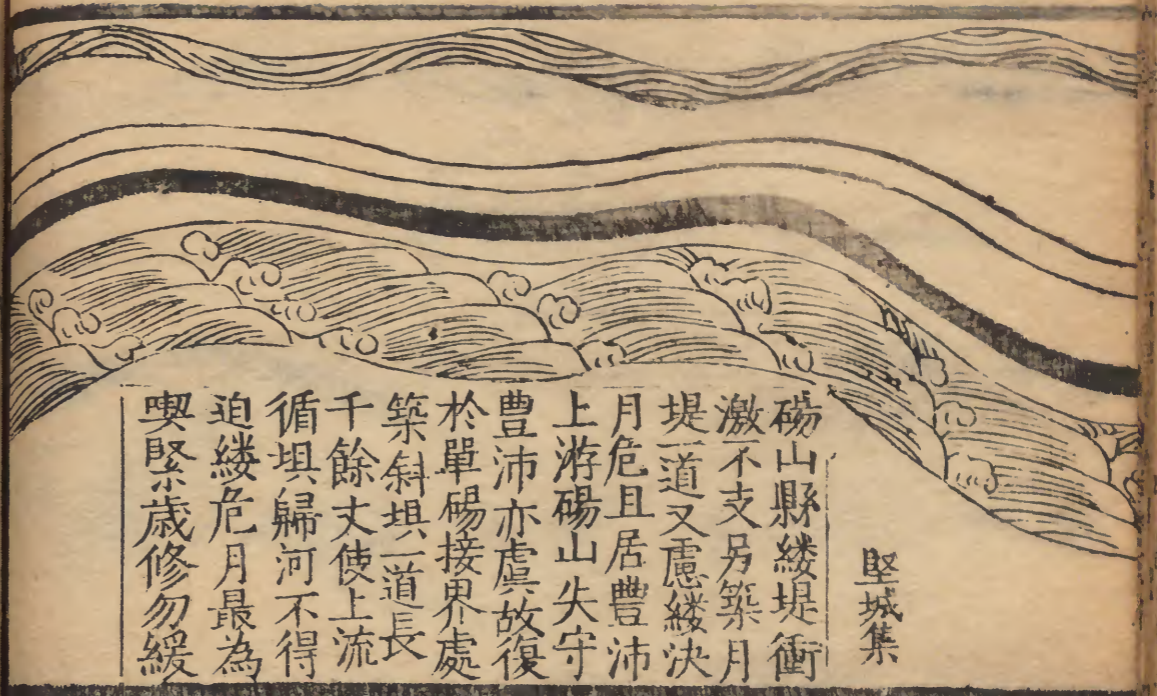 堅城集
碭山縣縷堤衝
激不支另築月
堤一道又慮縷決
月危且居豐沛
上游碭山失守
豊沛亦虞故復
於單碭接界處
築斜埧一道長
千餘丈使上流
循埧歸河不得
迫縷危月最為
喫緊歲修勿緩